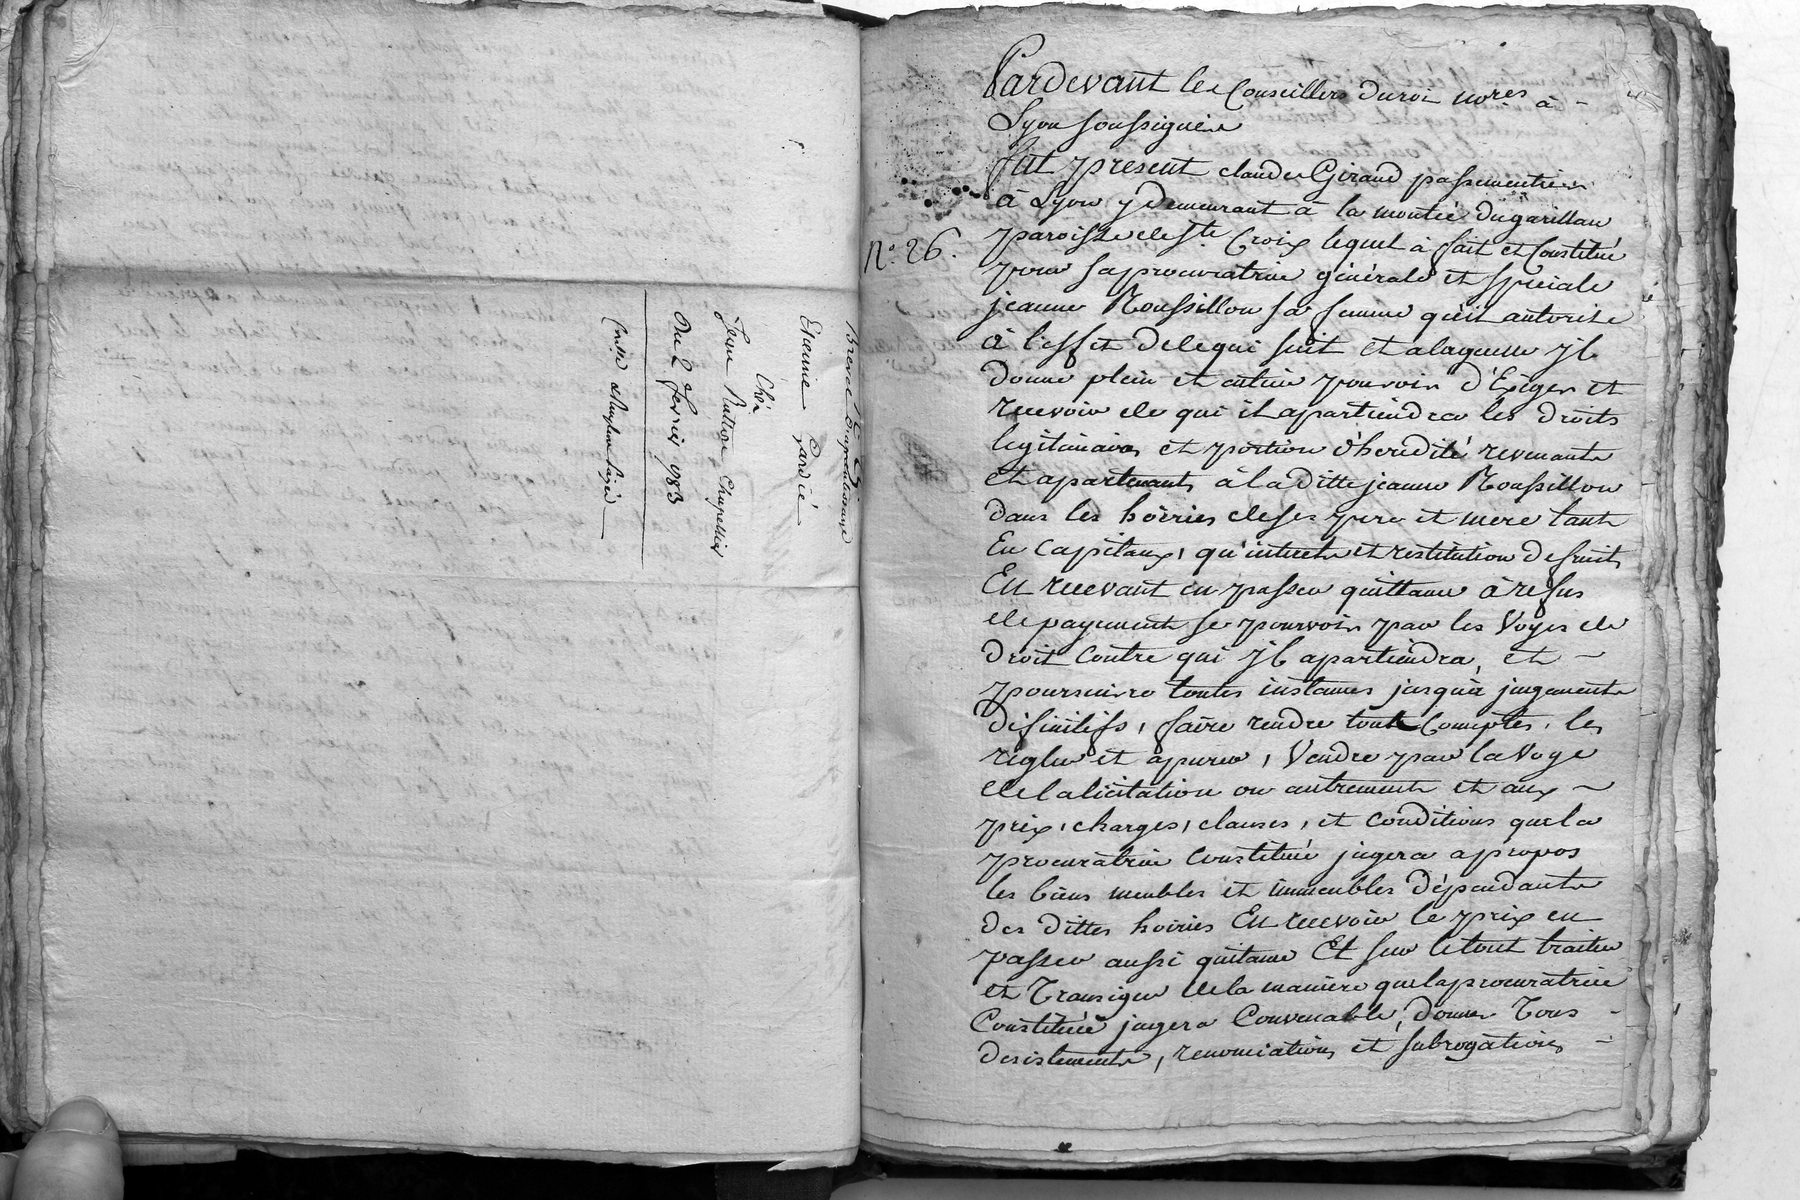 Brevet d'aprentissage
Etienne Gardié
Chés
Jean Chapellier
Du 2 fevrier 1783
N.o 26.
Pardevant les Conseillers du roi no.res à
Lyon soussignés
fut present claude Giraud passementier
à Lyon y demeurant à la montée du garillan
paroisse de s.te Croix lequel à fait et Constitué
pour sa procuratrice générale et speciale
jeanne Roussillon sa femme qu'il autorise
à l'effet de ce qui suit et a laquelle jl
donne plein et entier pouvoir d'Exiger et
recevoir de qui il apartiendra les droits
legitimaires et portion d'heredité revenants
et apartenants à la ditte jeanne Roussillon
dans les hoiries de ses pere et mere tant
En Capitaux, qu'interets et restitution de fruits
En recevant en passer quittance à refus
de payement se pourvoir par les Voyes de
droit contre qui jl apartiendra, et
poursuivre toutes instances jusqu'à jugements
difinitifs, faire rendre tout Comptes, les
regler et apurer, Vendre par la Voye
de la licitation ou autrement et aux
prix, charges, clauses, et conditions que la
procuratrice constituée jugera apropos
les biens meubles et immeubles dépendants
des dittes hoiries En recevoir le prix en
passer aussi quitance Et sur le tout traiter
et Transiger de la maniere que la procuratrice
Constituée jugera Convenable, donner Tous
desistements, renonciations et subrogations